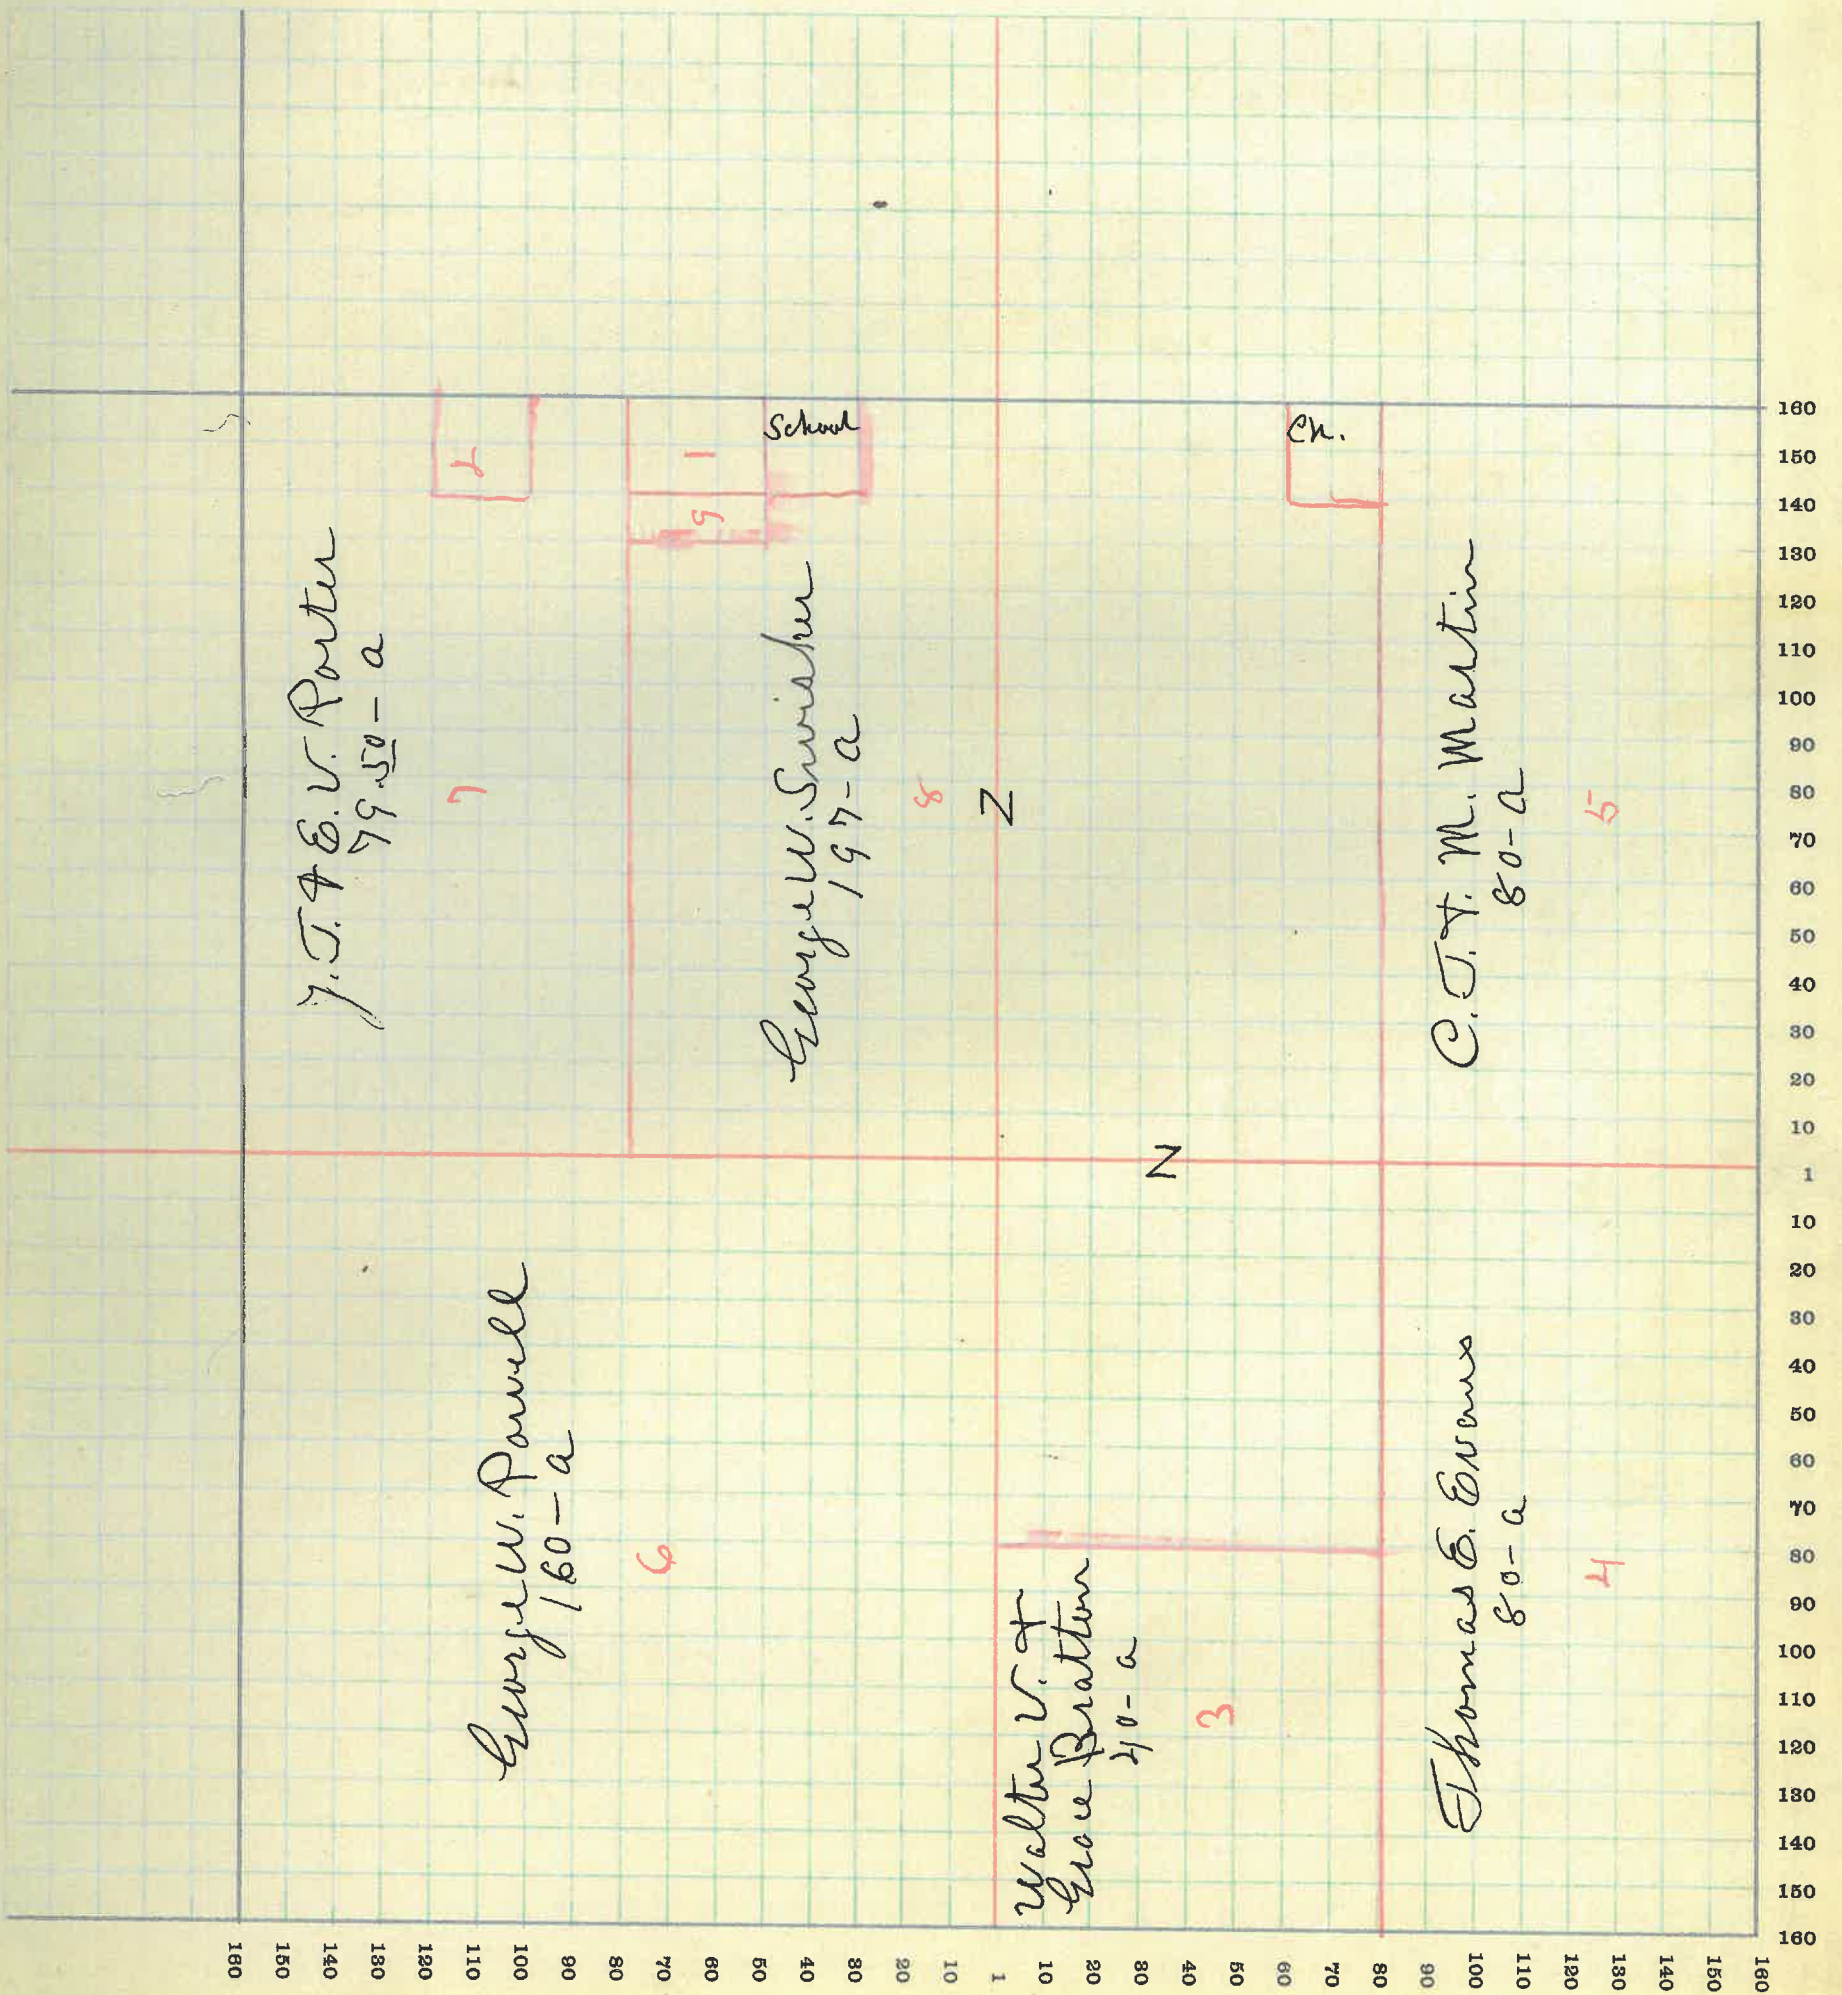 J. T. & E. V. Porter
79.50 - a
7
2
1
9
School
George W. Swisher
197 - a
8
Z
Ch.
C. T. & M. Martin
80 - a
5
N
George W. Powell
160 - a
6
Walter V. &
Grace Bratton
40 - a
3
Thomas E. Evans
80 - a
4
160
150
140
130
120
110
100
90
80
70
60
50
40
30
20
10
1
10
20
30
40
50
60
70
80
90
100
110
120
130
140
150
160
160
150
140
130
120
110
100
90
80
70
60
50
40
30
20
10
1
10
20
30
40
50
60
70
80
90
100
110
120
130
140
150
160